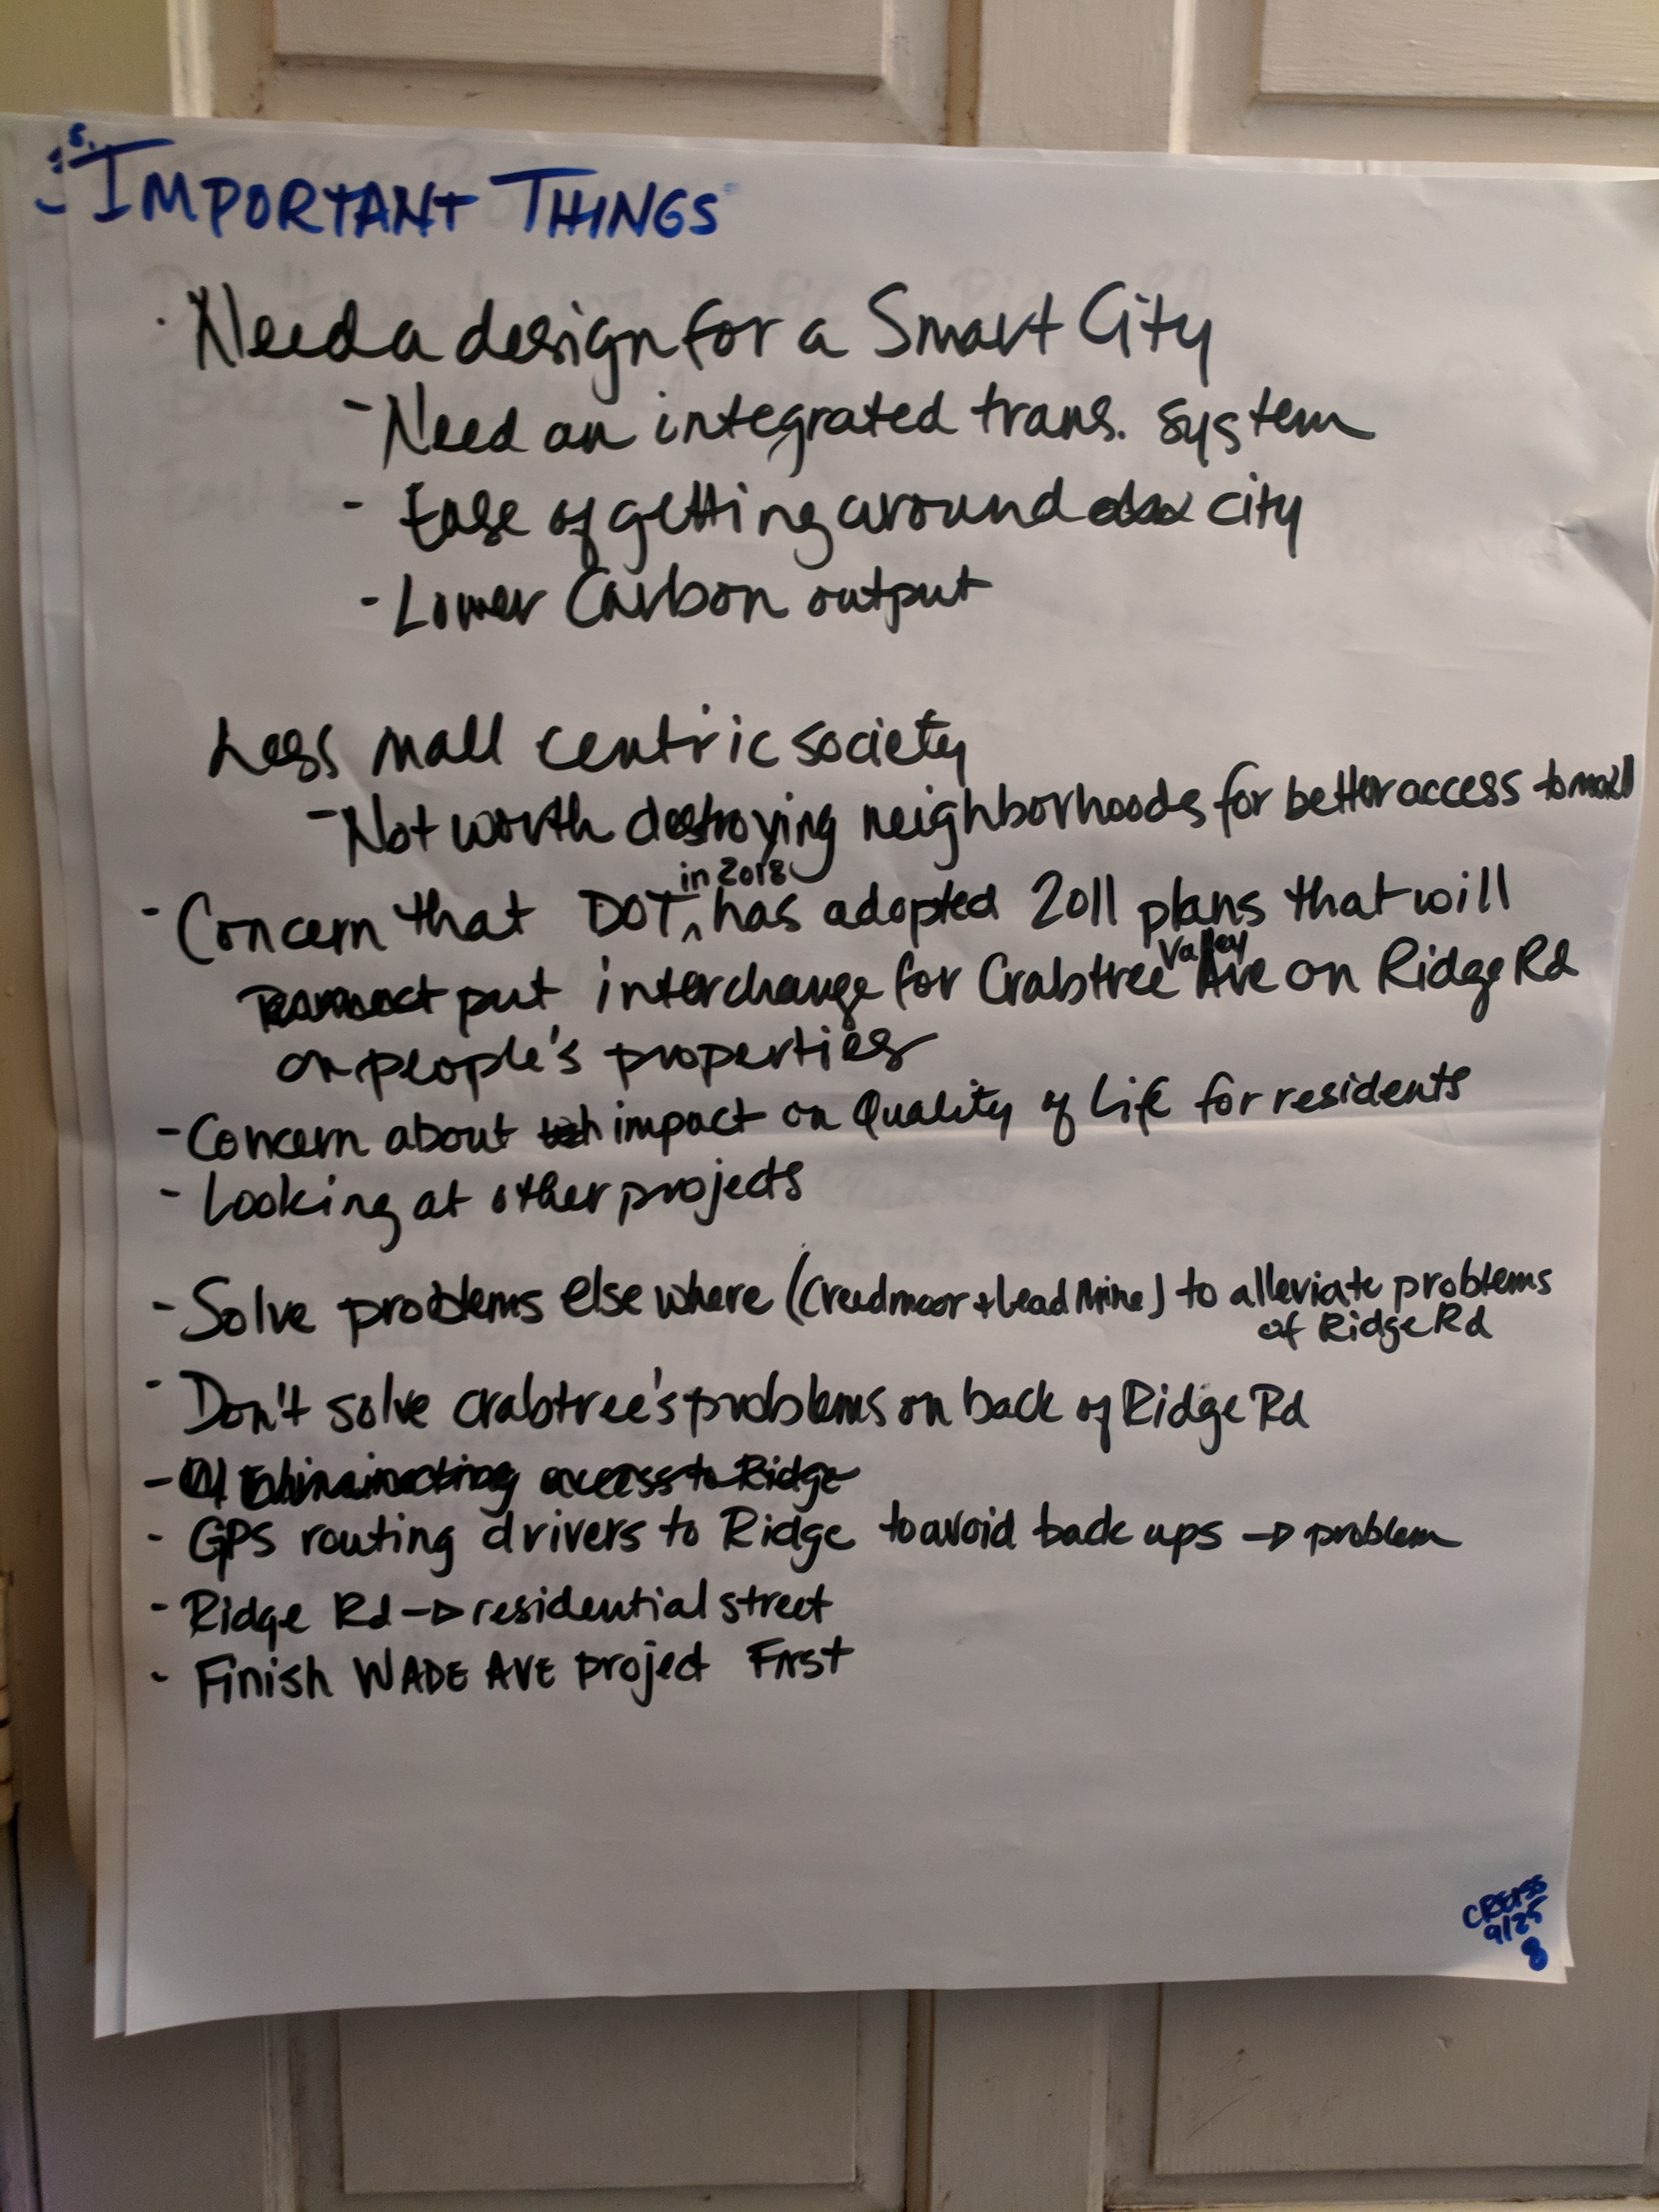 IMPORTANT THINGS
· Need a design for a Smart City
- Need an integrated trans. system
- Ease of getting around city
- Lower Carbon output
Less mall centric society
- Not worth destroying neighborhoods for better access to mall
in 2018
- Concern that DOT ^ has adopted 2011 plans that will
Valley
put interchange for Crabtree Ave on Ridge Rd
on people's properties
- Concern about impact on Quality of Life for residents
- Looking at other projects
- Solve problems elsewhere (Creedmoor + Lead Mine) to alleviate problems
of Ridge Rd
- Don't solve crabtree's problems on back of Ridge Rd
- access to Ridge
- GPS routing drivers to Ridge to avoid back ups → problem
- Ridge Rd → residential street
- Finish WADE AVE project First
9/25
8